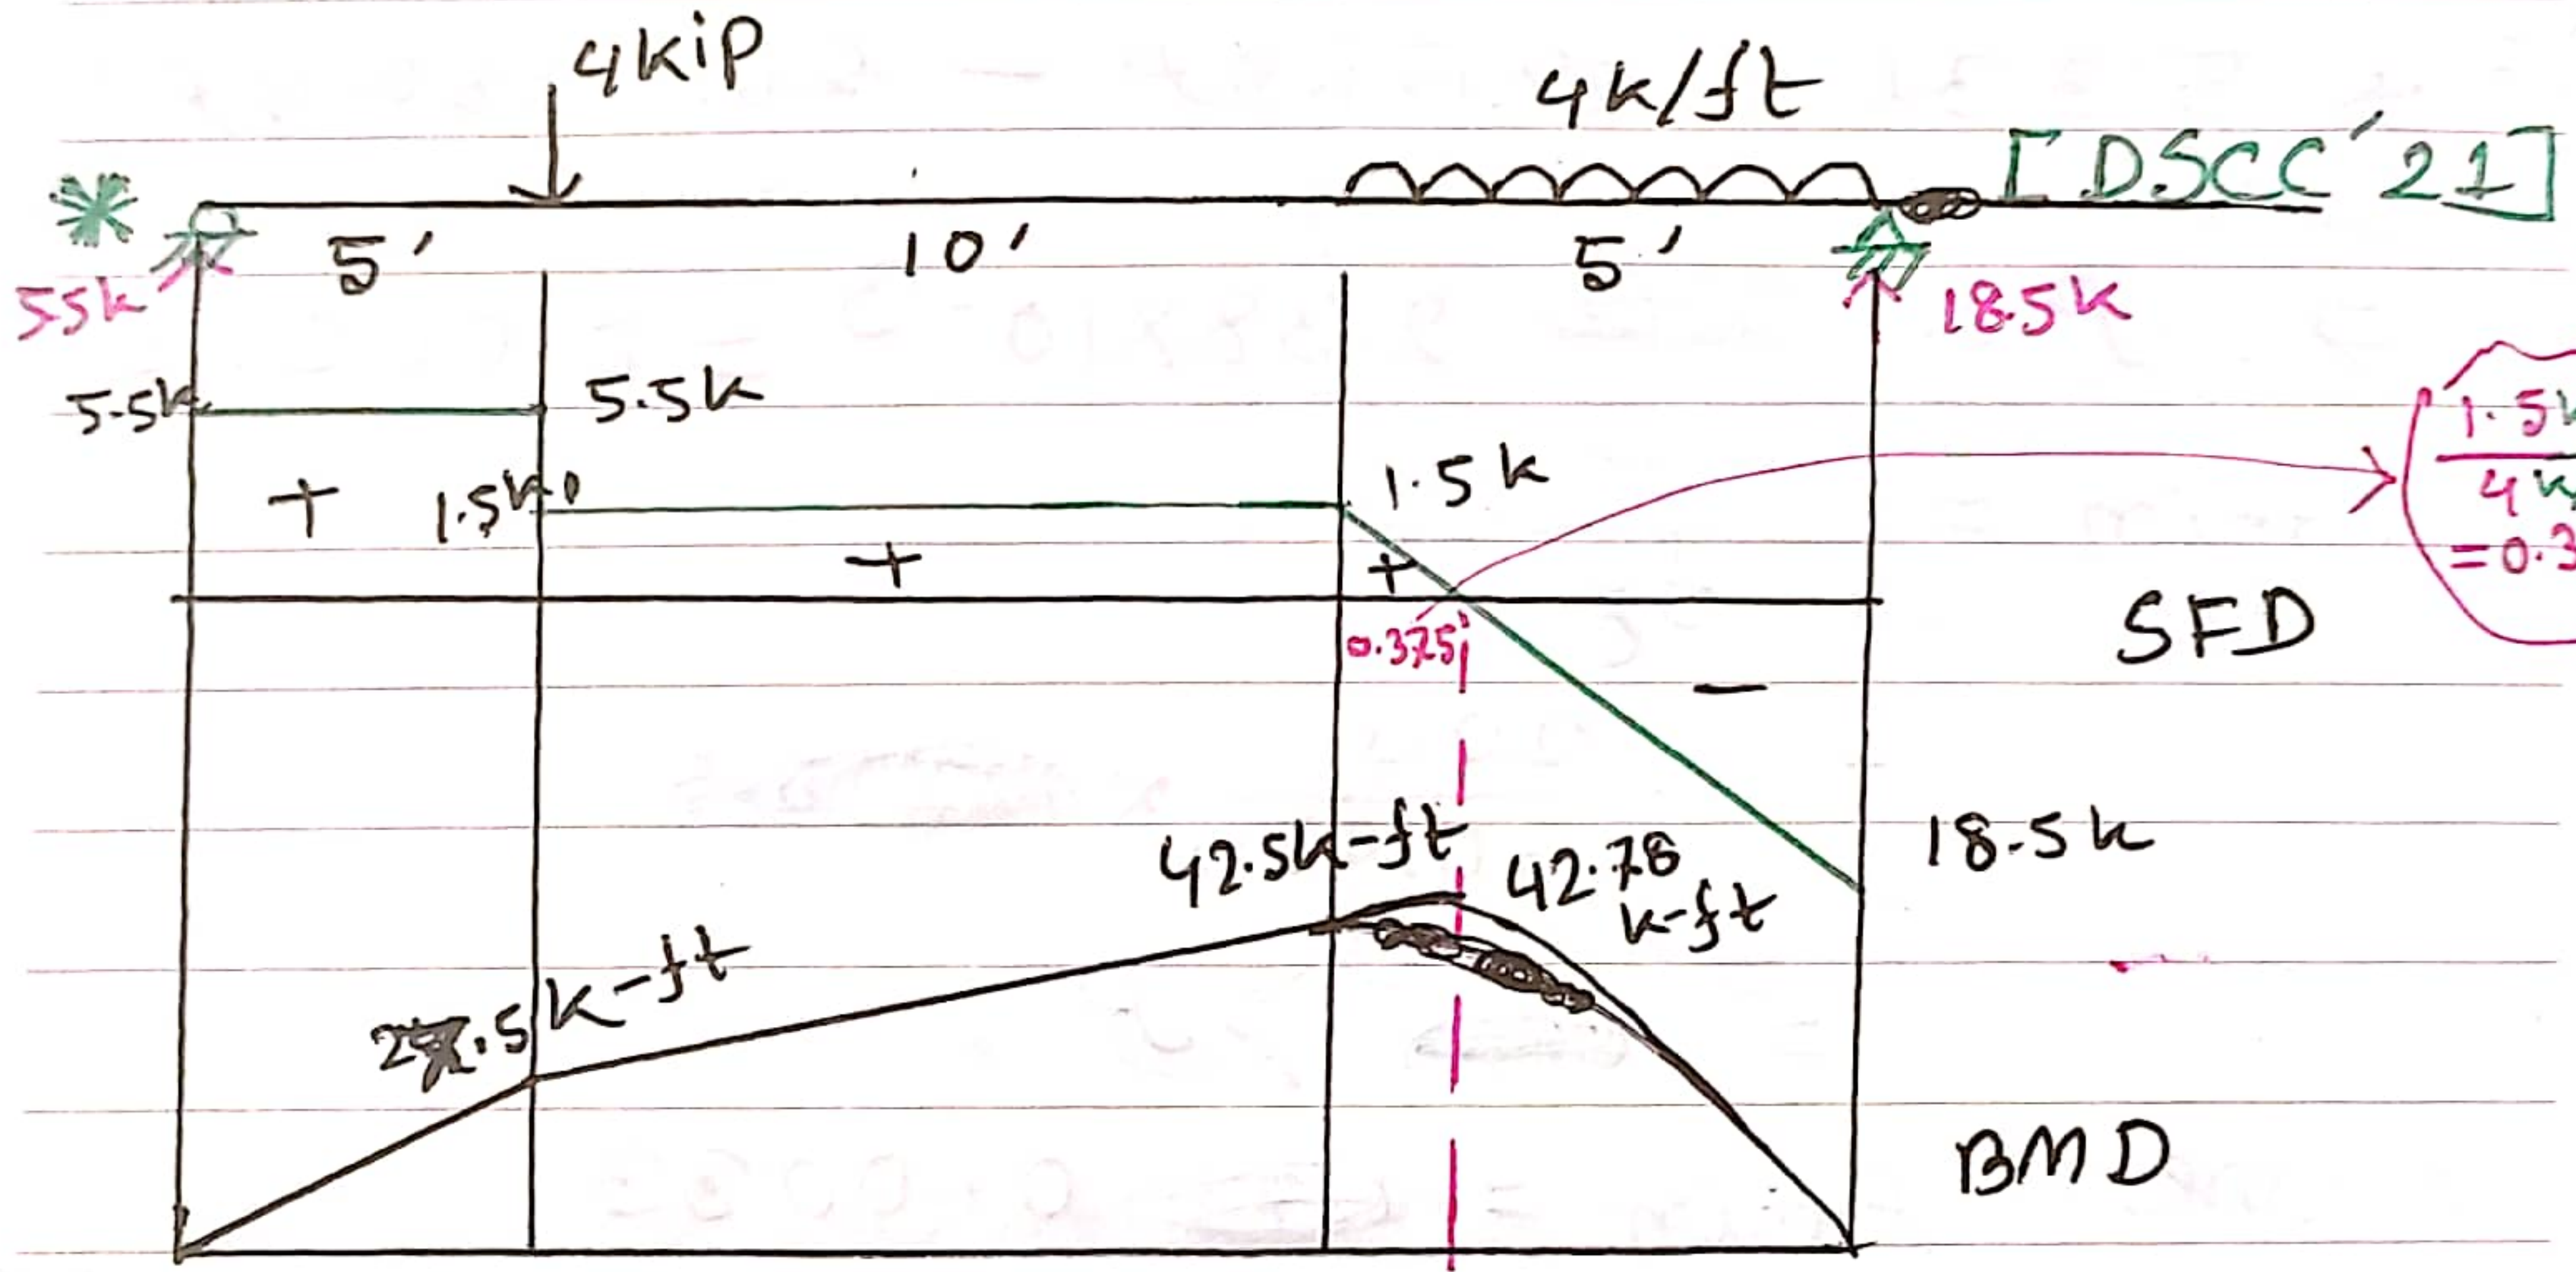 4kip
4k/ft
[DSCC'21]
5'
10'
5'
55k
18.5k
5.5k
5.5k
1.5k
1.5k
+
+
+
1.5k
4k
=0.3
0.375'
SFD
-
18.5k
42.5k-ft
42.78
k-ft
27.5k-ft
BMD